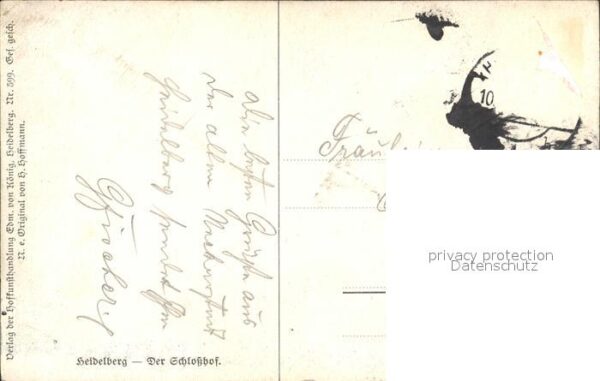 Verlag der Hofkunsthandlung Edm. von König, Heidelberg. Nr. 399. Ges. gesch.
N. e. Original von H. Hoffmann.
Die besten Grüße aus
der alten Neckarstadt
Heidelberg sendet
Heidelberg — Der Schloßhof.
Fräul
10
privacy protection
Datenschutz